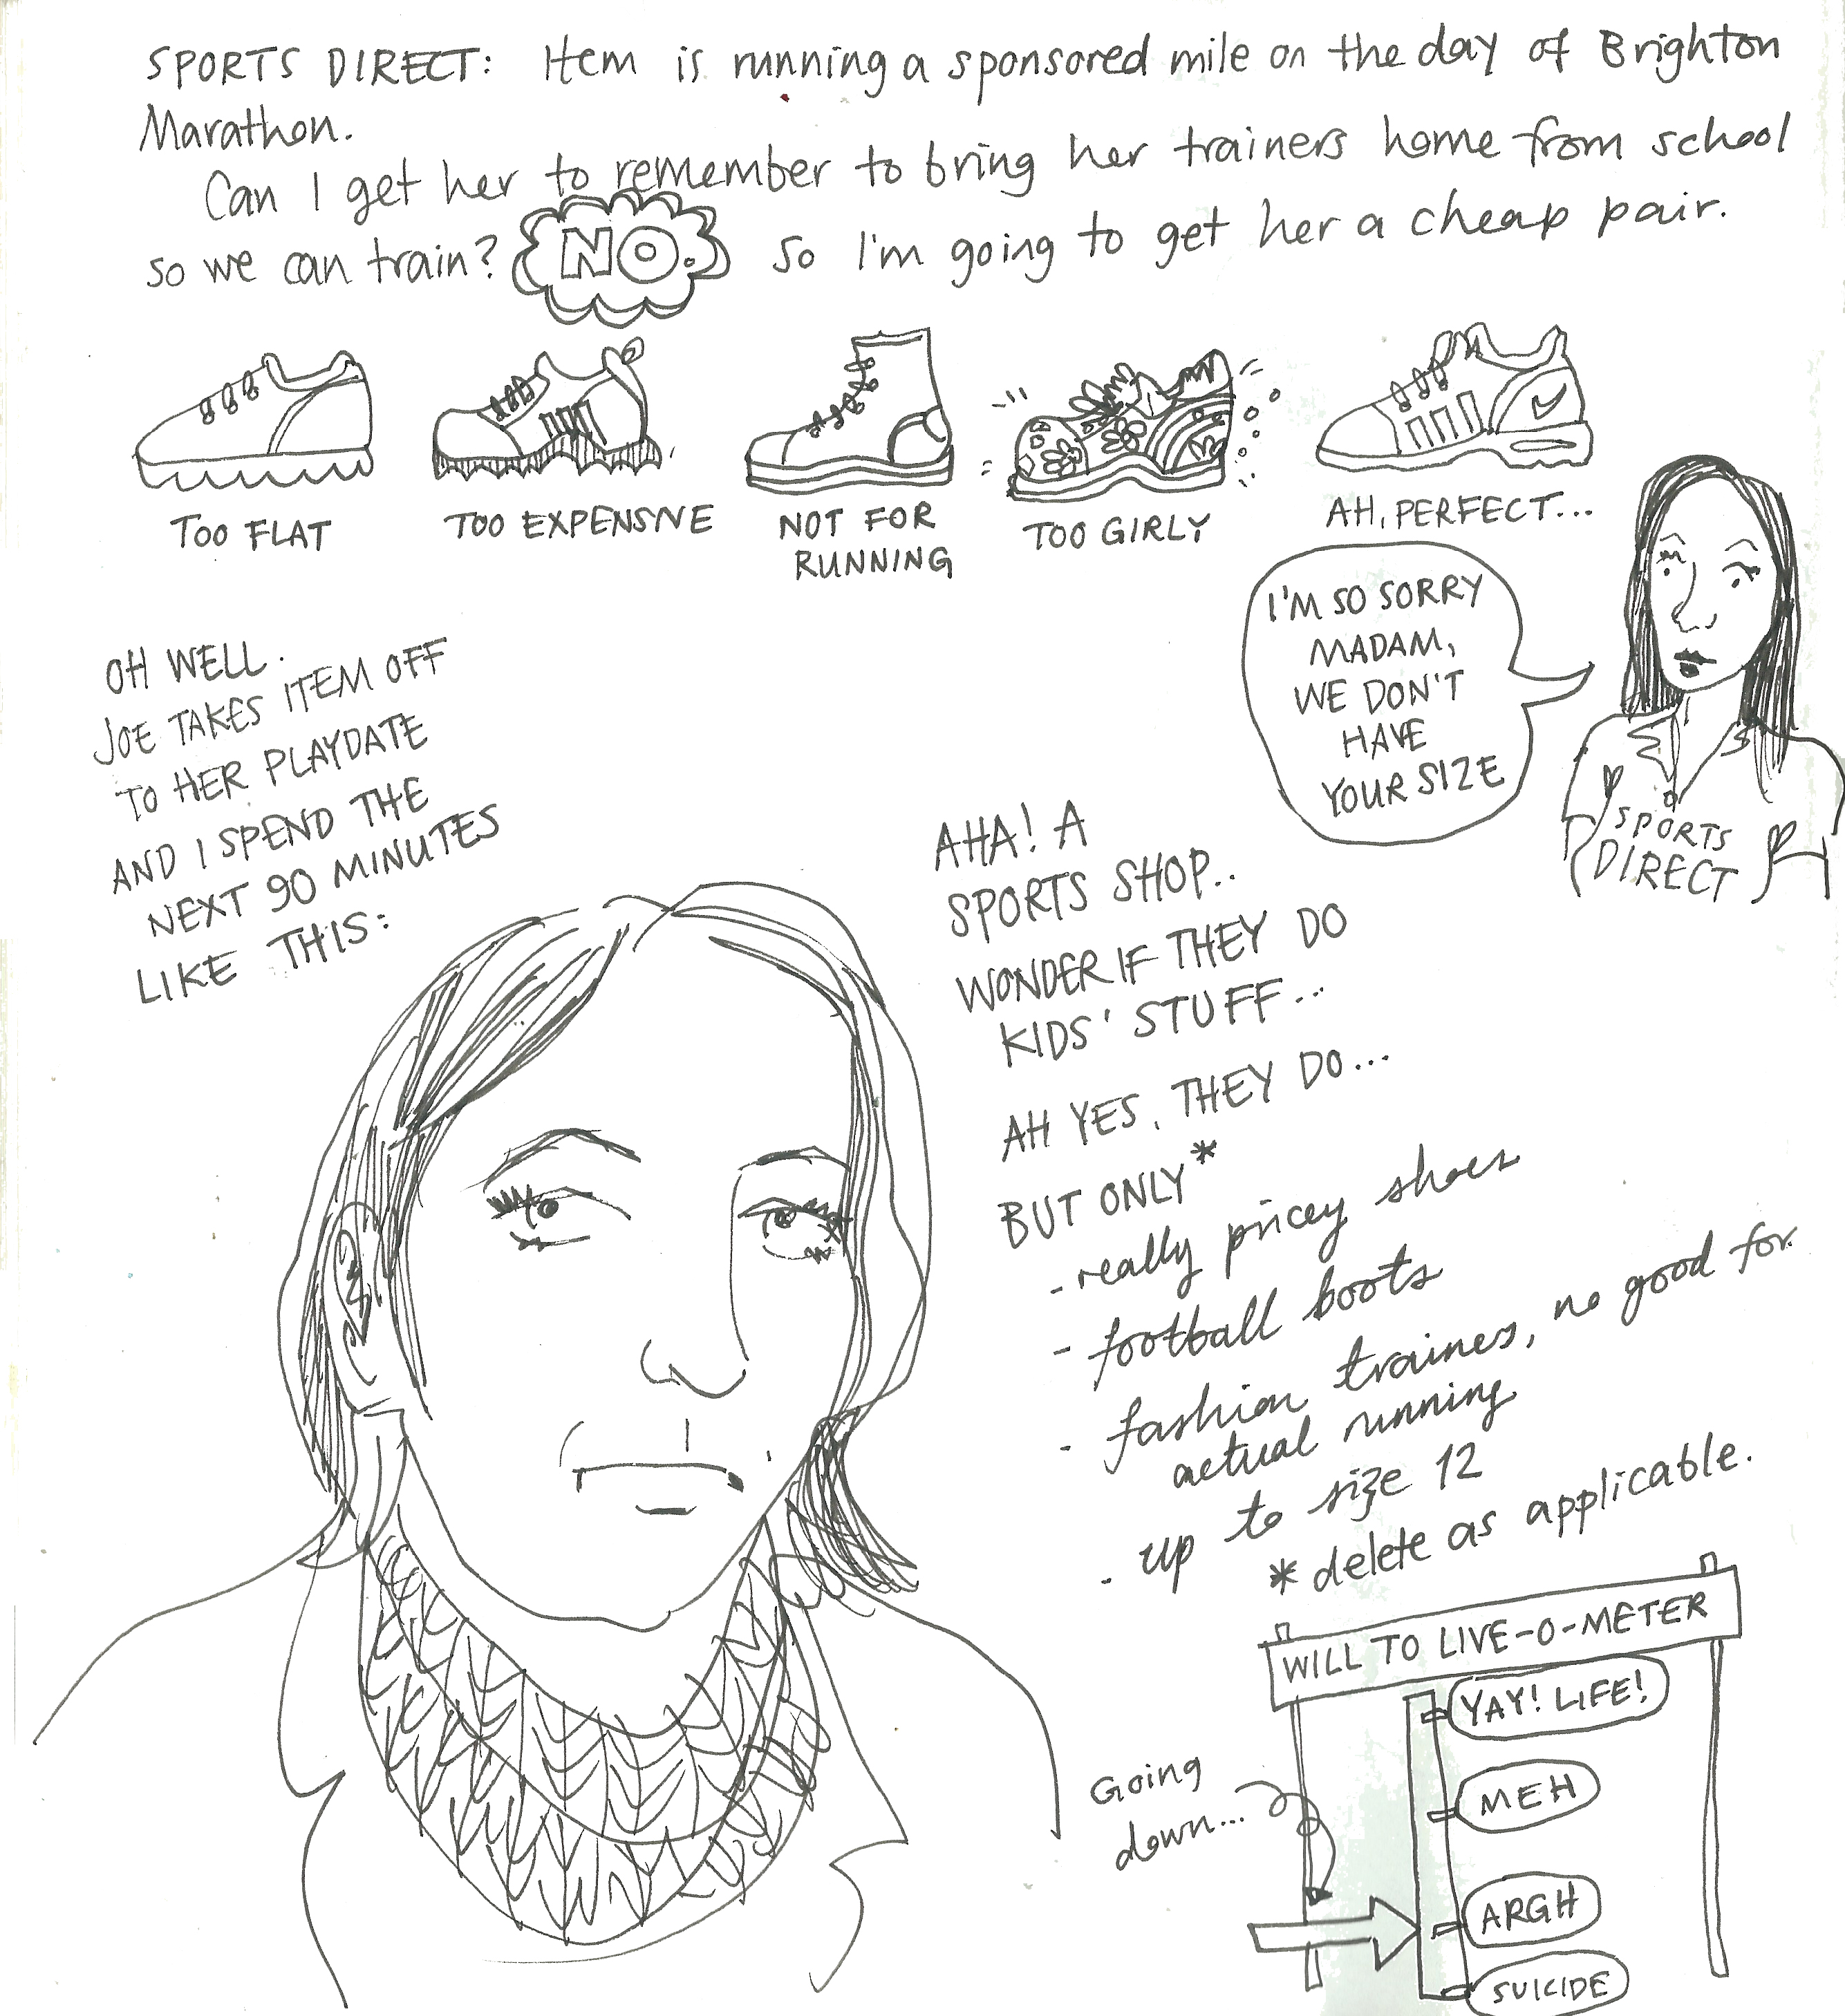 SPORTS DIRECT: Item is running a sponsored mile on the day of Brighton
Marathon.
Can I get her to remember to bring her trainers home from school
so we can train? NO. So I'm going to get her a cheap pair.
TOO FLAT
TOO EXPENSIVE
NOT FOR
RUNNING
TOO GIRLY
AH, PERFECT...
I'M SO SORRY
MADAM,
WE DON'T
HAVE
YOUR SIZE
SPORTS
DIRECT
OH WELL.
JOE TAKES ITEM OFF
TO HER PLAYDATE
AND I SPEND THE
NEXT 90 MINUTES
LIKE THIS:
AHA! A
SPORTS SHOP..
WONDER IF THEY DO
KIDS' STUFF...
AH YES, THEY DO...
BUT ONLY*
- really pricey shoes
- football boots
- fashion trainers, no good for
actual running
- up to size 12
* delete as applicable.
WILL TO LIVE-O-METER
YAY! LIFE!
MEH
Going
down...
ARGH
SUICIDE